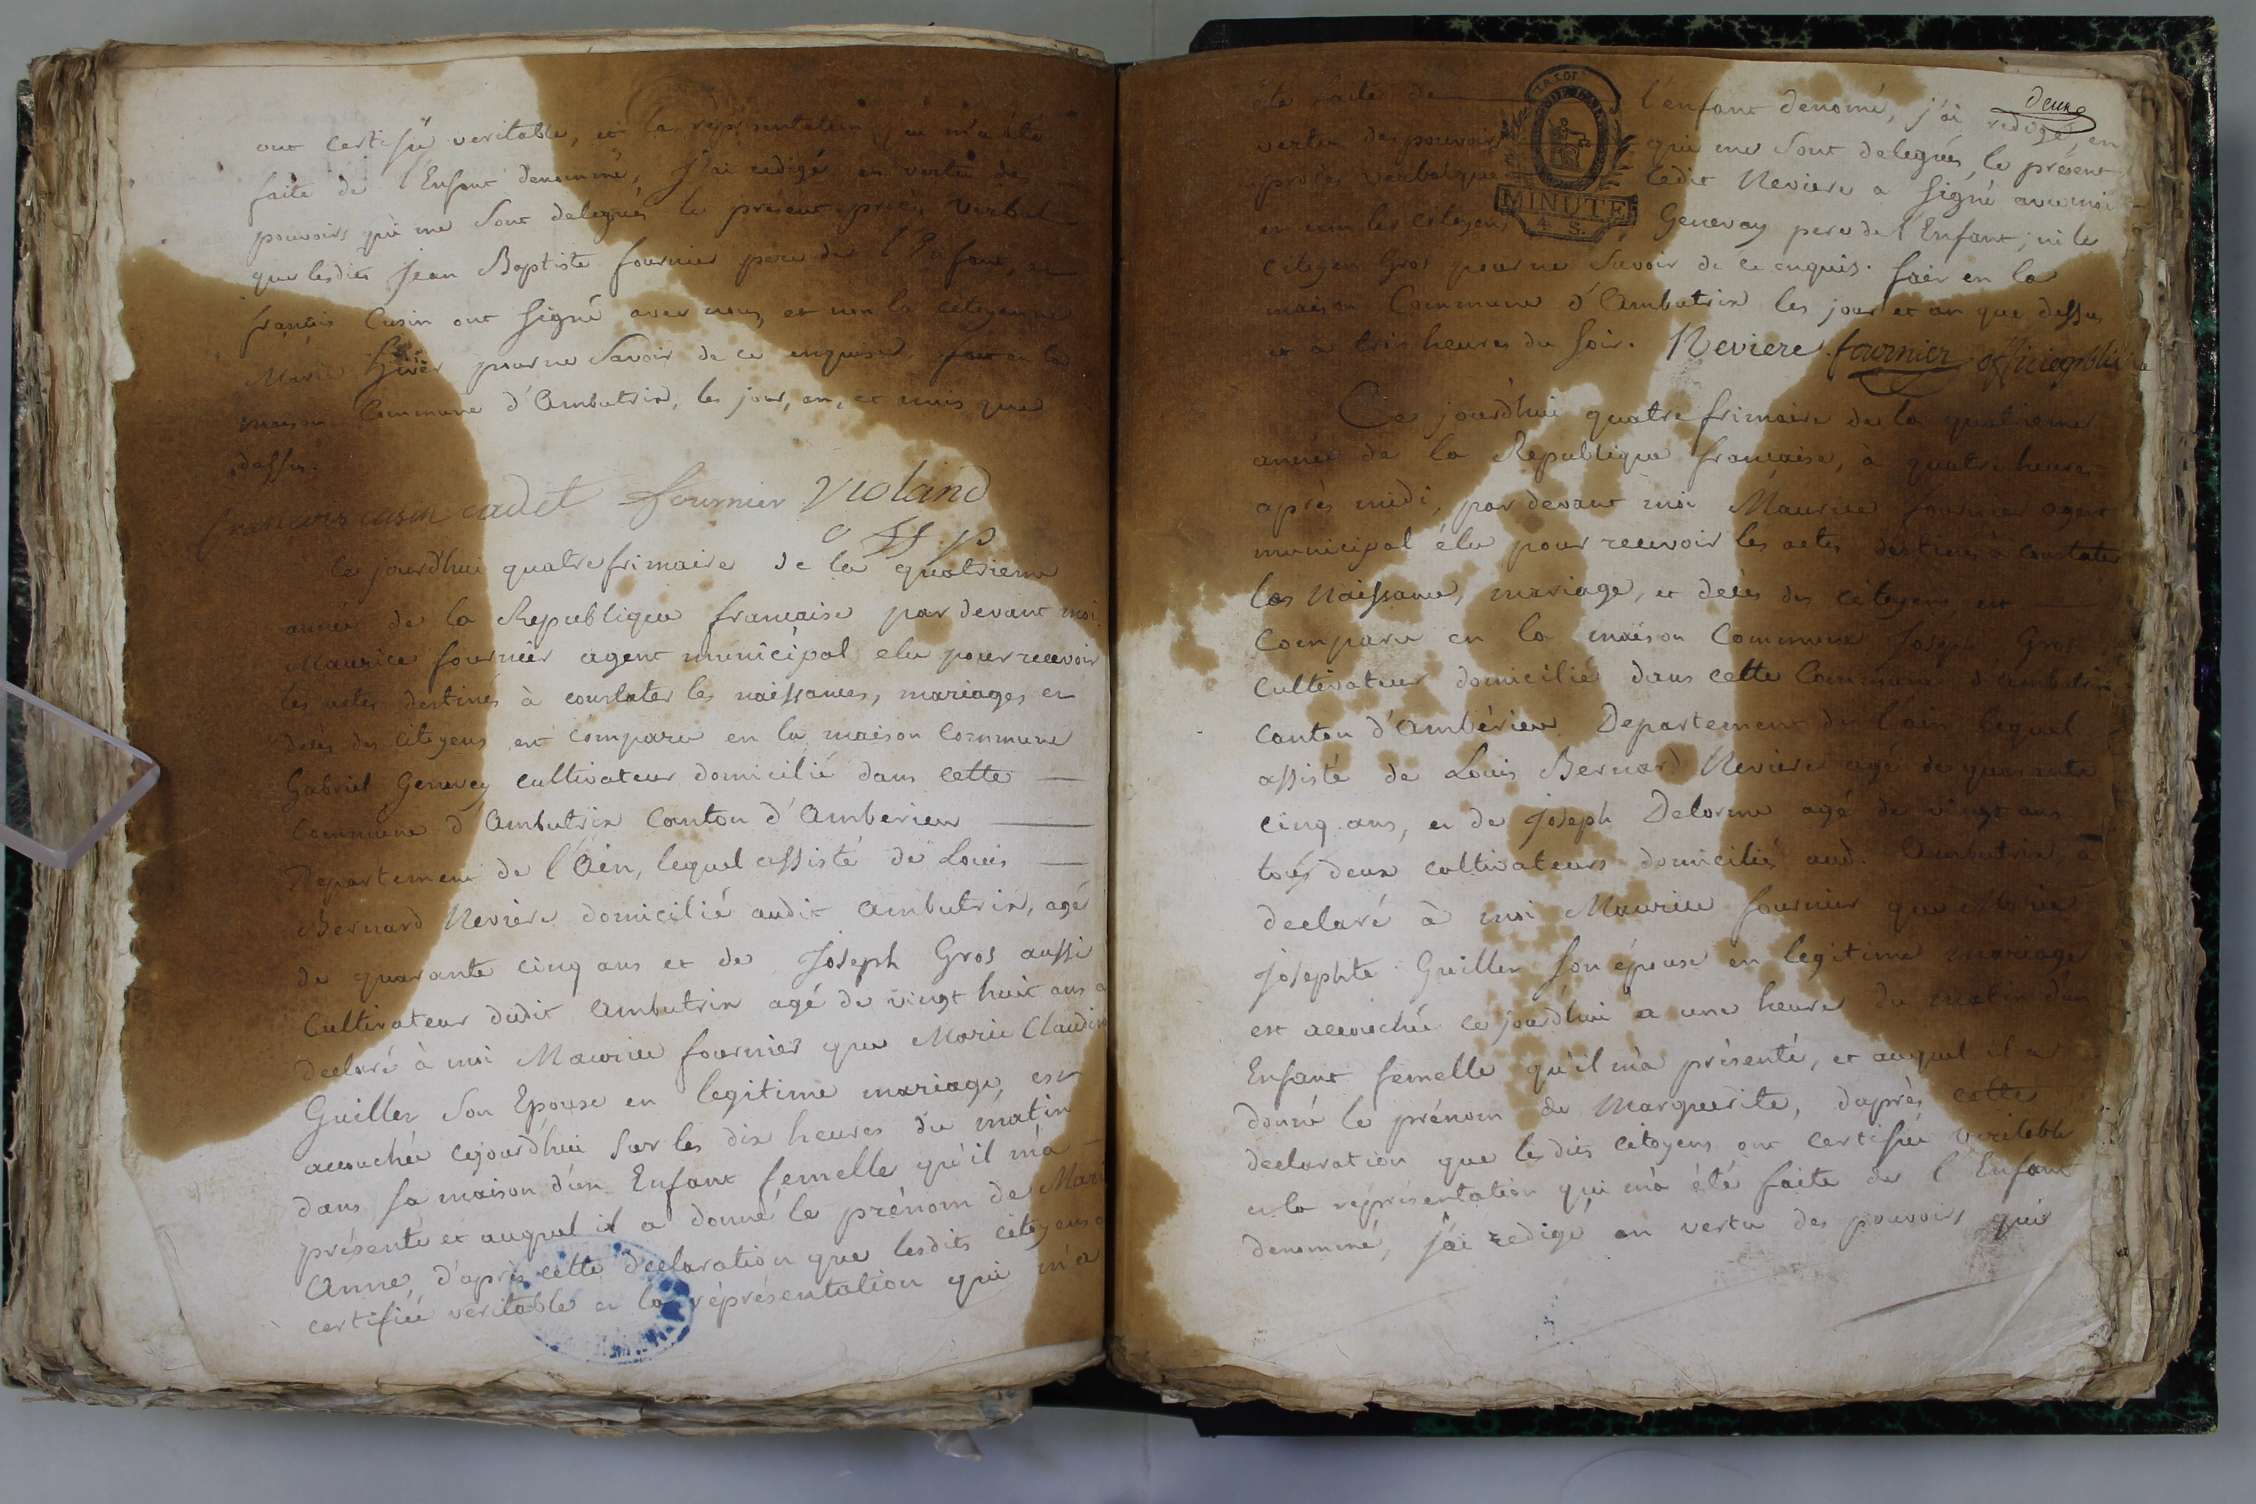 ont certifié veritable, et la représentation qui m'a été
faite de l'Enfant denommé, J'ai redigé en vertu des
pouvoirs qui me sont delegués le présent procès verbal
que lesdits Jean Baptiste fournier pere de l'Enfant, et
françois Cusin ont signé avec nous, et non la citoyenne
Marie pour ne savoir de ce enquise. fait en la
maison Commune d'Ambutrix, les jour, an, et mois que
dessus.
francois cusin cadet fournier Violand
off p
Ce jourd'hui quatre frimaire de la quatrieme
année de la Republique francaise par devant moi
Maurice fournier agent municipal elu pour recevoir
les actes destinés à constater les naissances, mariages, et
deces des citoyens est comparu en la maison Commune
Gabriel Genevey cultivateur domicilié dans cette
Commune d'Ambutrix Canton d'Amberieu
Departement de l'Ain, lequel assisté de Louis
Bernard Neviere domicilié audit ambutrix, agé
de quarante cinq ans et de Joseph Gros aussi
Cultivateur dudit Ambutrix agé de vingt huit ans a
declaré à moi Maurice fournier que Marie Claudine
Guiller son Epouse en legitime mariage, est
accouchée cejourd'hui sur les dix heures du matin
dans sa maison d'un Enfant femelle qu'il m'a
présenté et auquel il a donné le prénom de Marie
Anne, d'après cette declaration que lesdits citoyens o
certifiée veritable et la réprésentation qui m'a
deux
été faite de l'enfant denomé, j'ai redigé, en
vertu des pouvoirs qui me sont delegués, le présent
procès verbal que ledit Neviere a signé avec moi
et non les citoyens Genevay pere de l'Enfant, ni le
Citoyen Gros pour ne savoir de ce enquis. fait en la
maison Commune d'Ambutrix les jour et an que dessus
et a trois heures du soir. Neviere fournier officie public
MINUTE
4 S.
Ce jourd'hui quatre frimaire de la quatrieme
année de la Republique francaise, à quatre heures
après midi, par devant moi Maurice fournier agent
municipal élu pour recevoir les actes destinés à constater
les Naissance, mariage, et décès des citoyens est
Comparu en la maison Commune Joseph Gros
Cultivateur domicilié dans cette Commune d'ambutrix
Canton d'Ambérieu Departement de l'ain lequel
assisté de Louis Bernard Neviere agé de quarante
cinq ans, et de Joseph Delorme agé de vingt ans
tous deux cultivateurs domiciliés aud. Ambutrix, a
declaré à moi Maurice fournier que
Josephte Guiller son épouse en legitime mariage
est accouchée ce jourd'hui a une heure du matin d'un
Enfant femelle qu'il m'a présenté, et auquel il a
donné le prénom de Marguerite, d'après cette
declaration que lesdits citoyens ont certifiée veritable
et la représentation qui m'a été faite de l'Enfant
denommé, j'ai redigé en vertu des pouvoirs qui